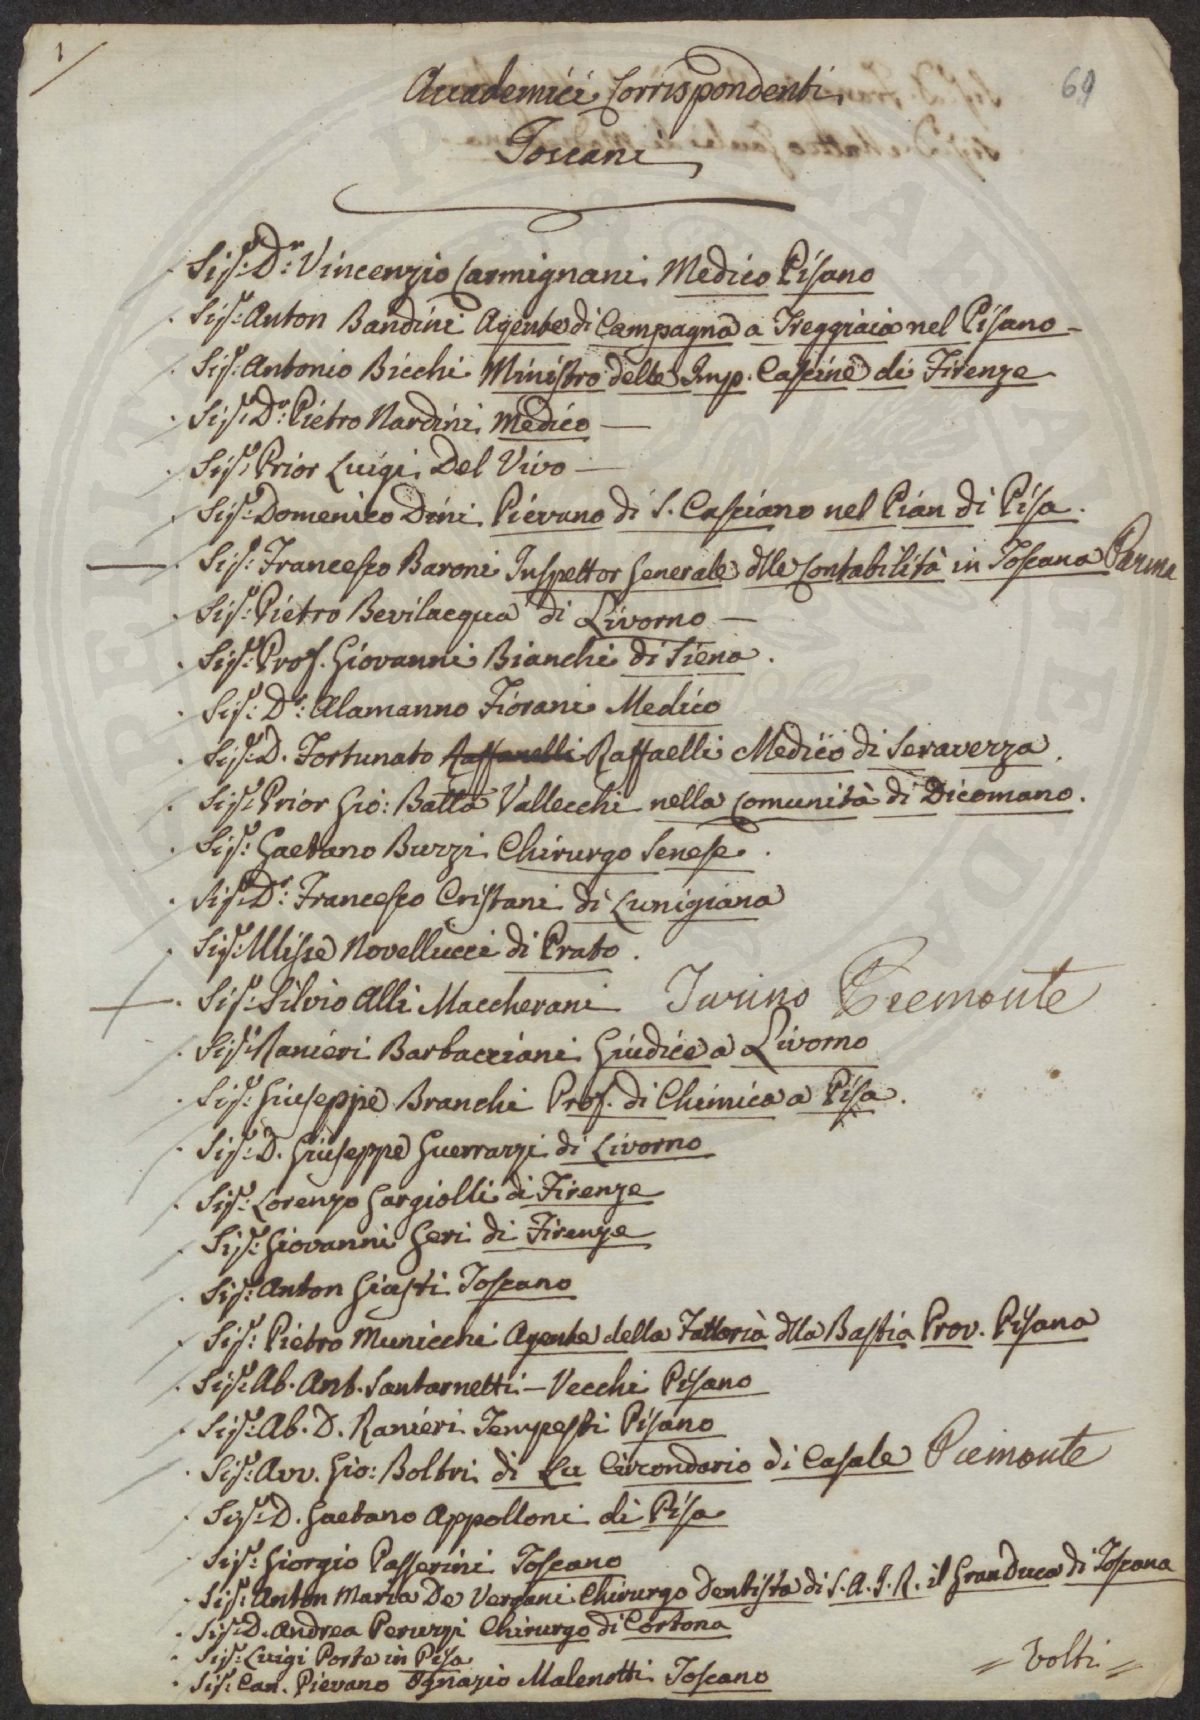 1
69
Accademici Corrispondenti
Toscani
Sig.r D.r Vincenzio Carmignani Medico Pisano
Sig.r Anton Bandini Agente di Campagna a Treggiaia nel Pisano
Sig.r Antonio Bicchi Ministro delle Imp. Cascine di Firenze
Sig.r D.r Pietro Nardini Medico
Sig.r Prior Luigi Del Vivo
Sig.r Domenico Dini Pievano di S. Casciano nel Pian di Pisa.
Sig.r Francesco Baroni Inspettor Generale dlle Contabilità in Toscana Parma
Sig.r Pietro Bevilacqua di Livorno
Sig.r Prof. Giovanni Bianchi di Siena.
Sig.r D.r Alamanno Fiorani Medico
Sig.r D. Fortunato Raffanelli Raffaelli Medico di Seraverza.
Sig.r Prior Gio: Batta Vallecchi nella Comunità di Dicomano.
Sig.r Gaetano Buzzi Chirurgo Senese.
Sig.r D.r Francesco Cristani di Lunigiana
Sig.r Ulisse Novellucci di Prato.
Sig.r Silvio Alli Maccherani Turino Piemonte
Sig.r Ranieri Barbacciani Giudice a Livorno
Sig.r Giuseppe Branchi Prof. di Chimica a Pisa.
Sig.r D. Giuseppe Guerrazzi di Livorno
Sig.r Lorenzo Gargiolli di Firenze
Sig.r Giovanni Geri di Firenze
Sig.r Anton Giusti Toscano
Sig.r Pietro Municchi Agente della Fattoria dlla Bastia Prov. Pisana
Sig.r Ab. Ant. Santarnetti-Vecchi Pisano
Sig.r Ab. D. Ranieri Tempesti Pisano
Sig.r Avv. Gio: Boltri di Lu Circondario di Casale Piemonte
Sig.r D. Gaetano Appolloni di Pisa
Sig.r Giorgio Passerini Toscano
Sig.r Anton Maria De Vergani Chirurgo Dentista di S. A. I. R. il Gran Duca di Toscana
Sig.r D. Andrea Peruzzi Chirurgo di Cortona
Sig.r Luigi Porte in Pisa
Sig.r Can. Pievano Ignazio Malenotti Toscano
= Volti =